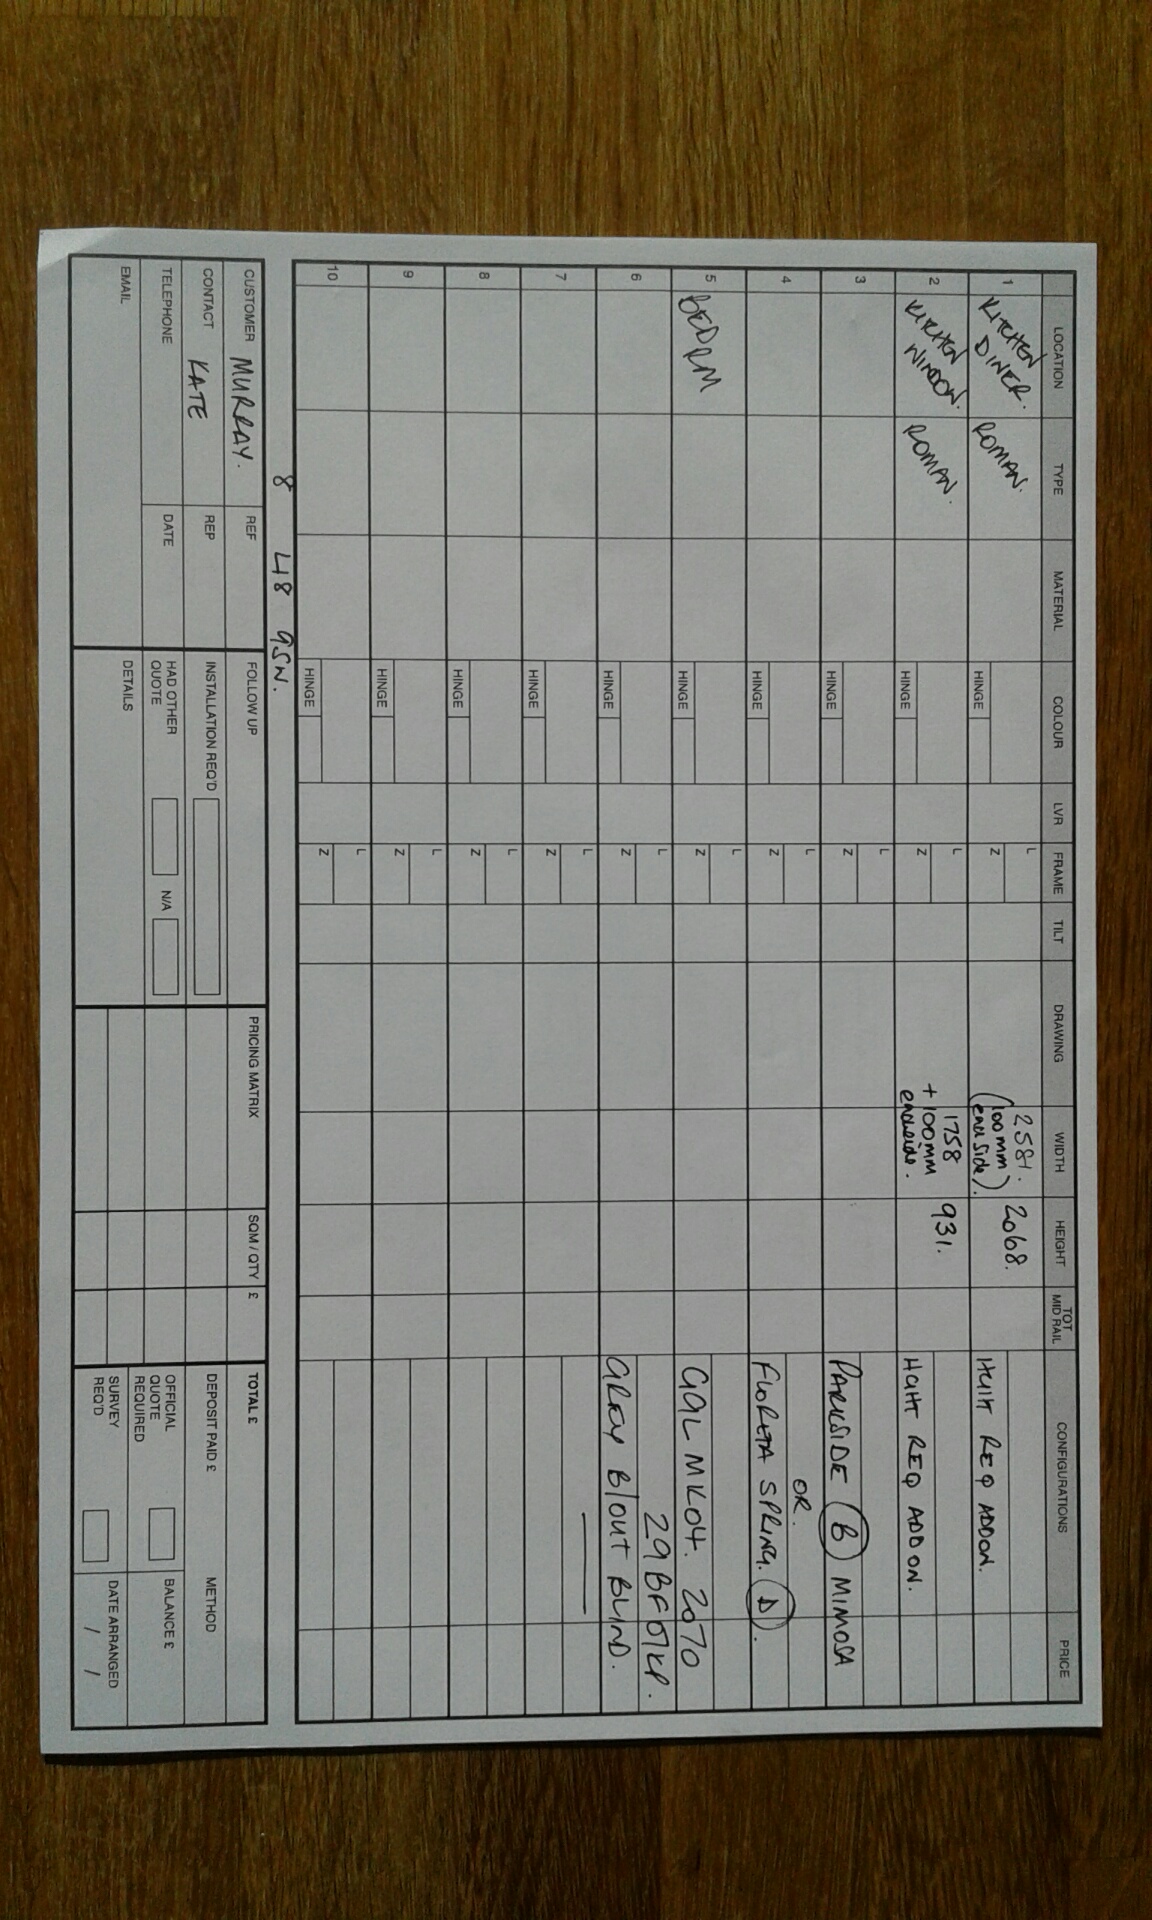 LOCATION TYPE MATERIAL COLOUR LVR FRAME TILT DRAWING WIDTH HEIGHT TOT MID RAIL CONFIGURATIONS PRICE
1 KITCHEN DINER. ROMAN. HINGE L Z 2581. (100mm each side). 2068. HGHT REQ ADDON.
2 KITCHEN WINDOW. ROMAN. HINGE L Z 1758 + 100mm eachside. 931. HGHT REQ ADD ON.
3 HINGE L Z PARKSIDE (B) MIMOSA
OR.
4 HINGE L Z FLORETA SPRING. (D).
5 BEDRM HINGE L Z GGL MK04. 2070
29BF07KP.
6 HINGE L Z GREY B/OUT BLIND.
7 HINGE L Z
8 HINGE L Z
9 HINGE L Z
10 HINGE L Z
8 L18 9SN.
CUSTOMER MURRAY. REF FOLLOW UP PRICING MATRIX SQM / QTY £ TOTAL £
CONTACT KATE REP INSTALLATION REQ'D DEPOSIT PAID £ METHOD
TELEPHONE DATE HAD OTHER QUOTE N/A OFFICIAL QUOTE REQUIRED BALANCE £
EMAIL DETAILS SURVEY REQ'D DATE ARRANGED / /